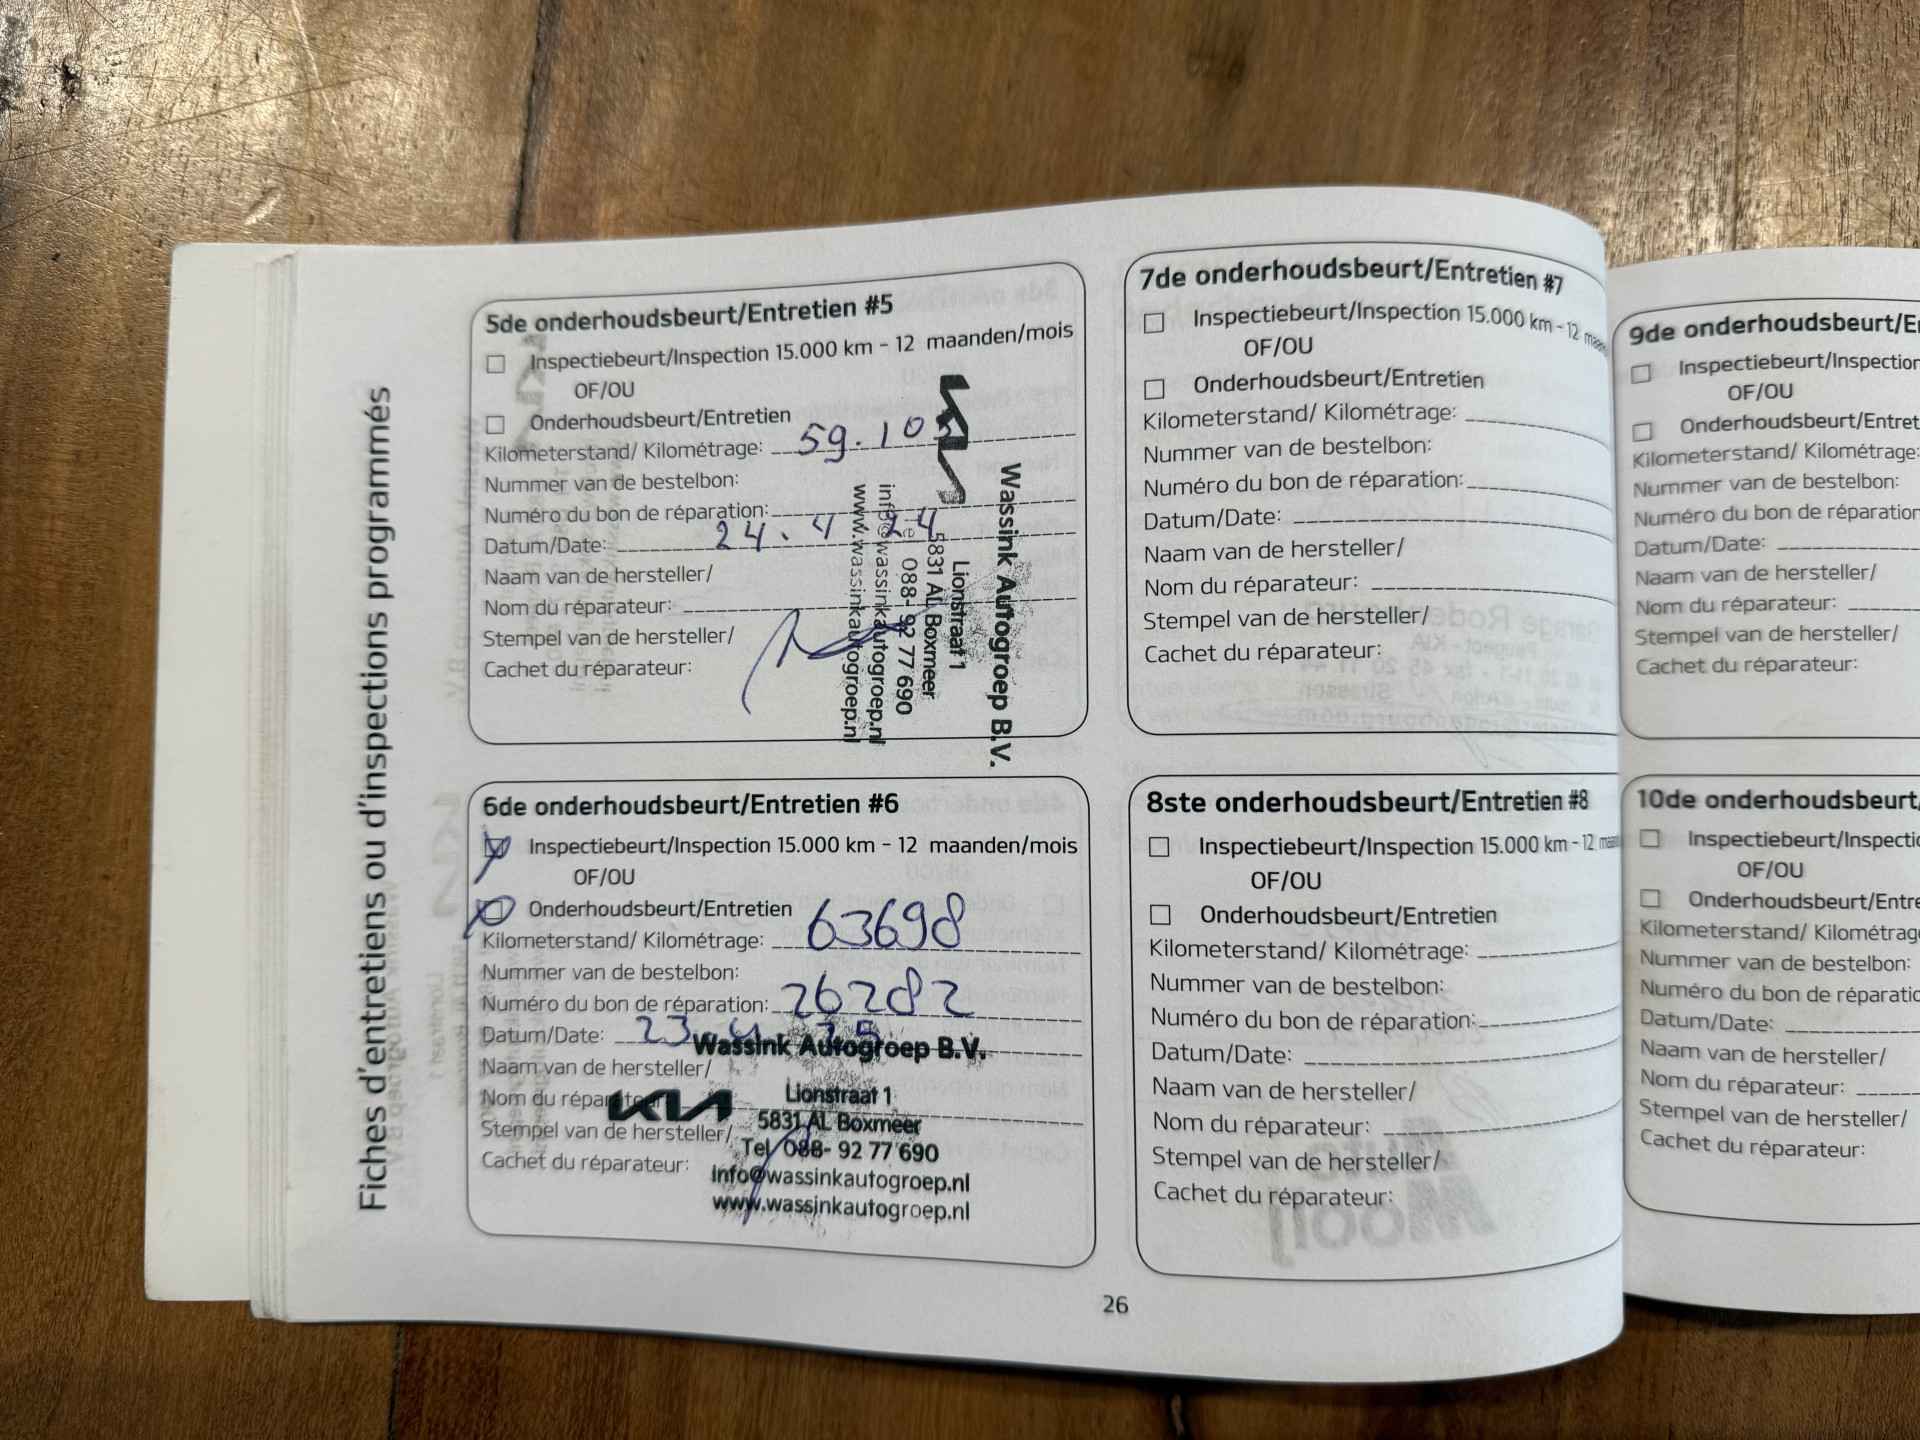 Fiches d'entretiens ou d'inspections programmés
5de onderhoudsbeurt/Entretien #5
Inspectiebeurt/Inspection 15.000 km - 12 maanden/mois
OF/OU
Onderhoudsbeurt/Entretien
Kilometerstand/ Kilométrage: 59.10
Nummer van de bestelbon:
Numéro du bon de réparation:
Datum/Date: 24.4 24
Naam van de hersteller/
Nom du réparateur:
Stempel van de hersteller/
Cachet du réparateur:
KIA
Wassink Autogroep B.V.
Lionstraat 1
5831 AL Boxmeer
Tel 088- 92 77 690
info@wassinkautogroep.nl
www.wassinkautogroep.nl
6de onderhoudsbeurt/Entretien #6
Inspectiebeurt/Inspection 15.000 km - 12 maanden/mois
OF/OU
Onderhoudsbeurt/Entretien
Kilometerstand/ Kilométrage: 63698
Nummer van de bestelbon:
Numéro du bon de réparation: 26282
Datum/Date: 23-4-25
Naam van de hersteller/
Nom du réparateur:
Stempel van de hersteller/
Cachet du réparateur:
Wassink Autogroep B.V.
KIA
Lionstraat 1
5831 AL Boxmeer
Tel 088- 92 77 690
Info@wassinkautogroep.nl
www.wassinkautogroep.nl
7de onderhoudsbeurt/Entretien #7
Inspectiebeurt/Inspection 15.000 km - 12
OF/OU
Onderhoudsbeurt/Entretien
Kilometerstand/ Kilométrage:
Nummer van de bestelbon:
Numéro du bon de réparation:
Datum/Date:
Naam van de hersteller/
Nom du réparateur:
Stempel van de hersteller/
Cachet du réparateur:
8ste onderhoudsbeurt/Entretien #8
Inspectiebeurt/Inspection 15.000 km - 12
OF/OU
Onderhoudsbeurt/Entretien
Kilometerstand/ Kilométrage:
Nummer van de bestelbon:
Numéro du bon de réparation:
Datum/Date:
Naam van de hersteller/
Nom du réparateur:
Stempel van de hersteller/
Cachet du réparateur:
26
9de onderhoudsbeurt/E
Inspectiebeurt/Inspection
OF/OU
Onderhoudsbeurt/Entret
Kilometerstand/ Kilométrage:
Nummer van de bestelbon:
Numéro du bon de réparation
Datum/Date:
Naam van de hersteller/
Nom du réparateur:
Stempel van de hersteller/
Cachet du réparateur:
10de onderhoudsbeurt/
Inspectiebeurt/Inspectio
OF/OU
Onderhoudsbeurt/Entre
Kilometerstand/ Kilométrag
Nummer van de bestelbon:
Numéro du bon de réparatio
Datum/Date:
Naam van de hersteller/
Nom du réparateur:
Stempel van de hersteller/
Cachet du réparateur: